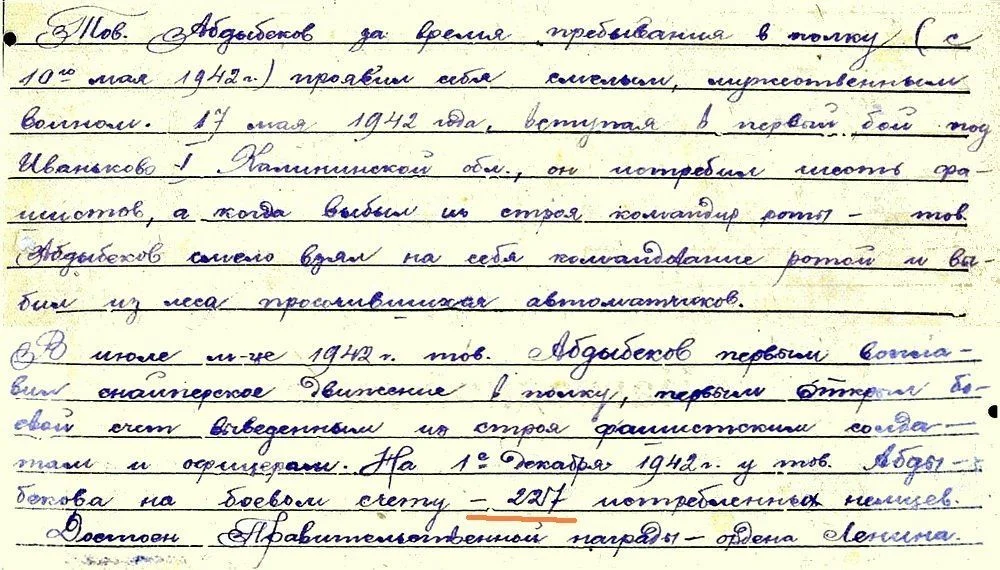 Тов. Абдыбеков за время пребывания в полку (с
10го мая 1942 г.) проявил себя смелым, мужественным
воином. 17 мая 1942 года, вступая в первый бой под
Иваньково-I Калининской обл., он истребил шесть фа-
шистов, а когда выбыл из строя командир роты – тов.
Абдыбеков смело взял на себя командование ротой и вы-
бил из леса просочившихся автоматчиков.
В июле м-це 1942 г. тов. Абдыбеков первым возгла-
вил снайперское движение в полку, первым открыл бо-
евой счет выведенным из строя фашистским солда-
там и офицерам. На 1е декабря 1942 г. у тов. Абды-
бекова на боевом счету – 227 истребленных немцев.
Достоин Правительственной награды – ордена Ленина.